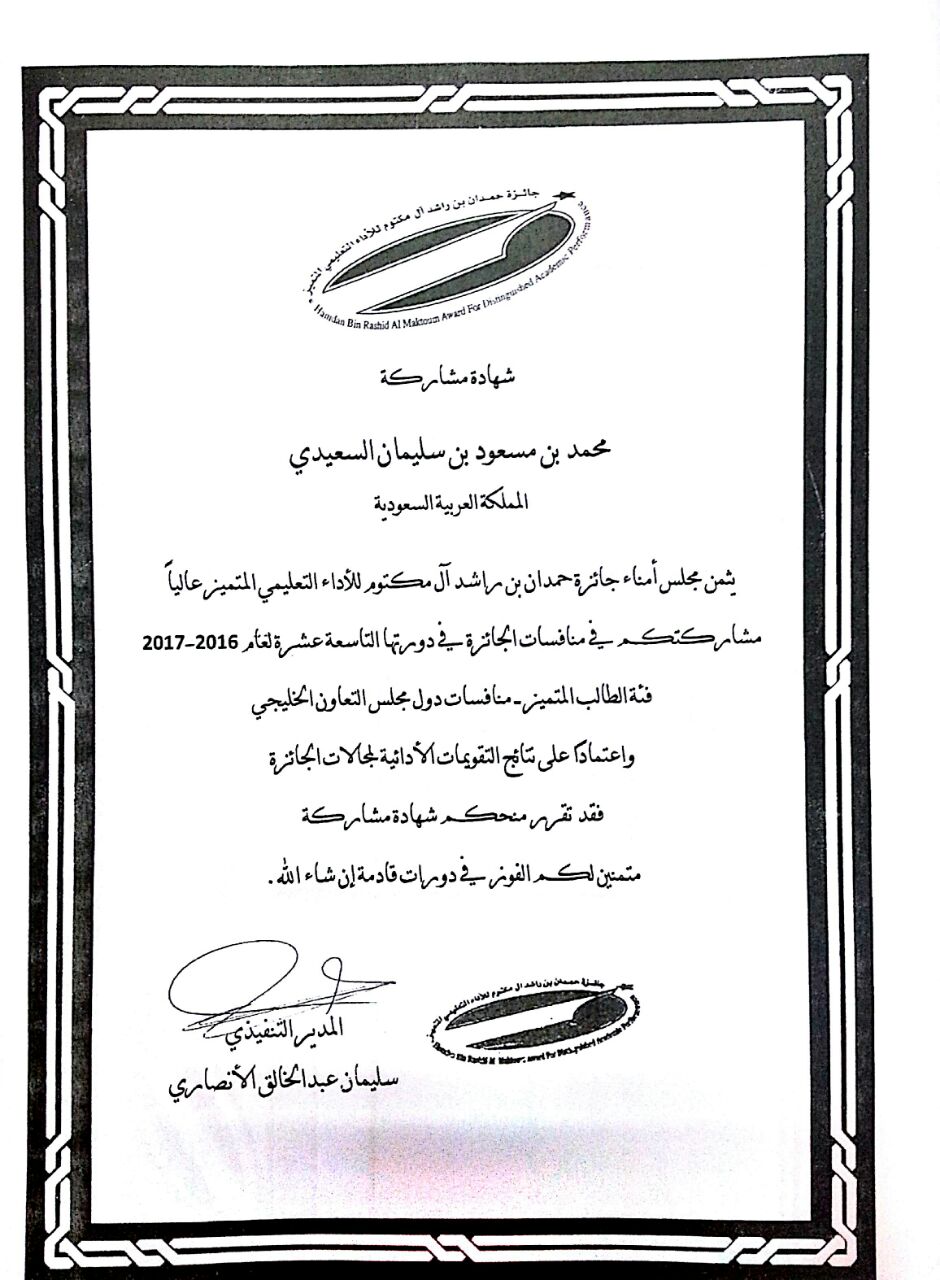 جائزة حمدان بن راشد آل مكتوم للأداء التعليمي المتميز
Hamdan Bin Rashid Al Maktoum Award For Distinguished Academic Performance
شهادة مشاركة
محمد بن مسعود بن سليمان السعيدي
المملكة العربية السعودية
يثمن مجلس أمناء جائزة حمدان بن راشد آل مكتوم للأداء التعليمي المتميز عالياً
مشاركتكم في منافسات الجائزة في دورتها التاسعة عشرة لعام 2016-2017
فئة الطالب المتميز - منافسات دول مجلس التعاون الخليجي
واعتمادًا على نتائج التقويمات الأدائية لمجالات الجائزة
فقد تقرر منحكم شهادة مشاركة
متمنين لكم الفوز في دورات قادمة إن شاء الله.
جائزة حمدان بن راشد آل مكتوم للأداء التعليمي المتميز
Hamdan Bin Rashid Al Maktoum Award For Distinguished Academic Performance
المدير التنفيذي
سليمان عبد الخالق الأنصاري